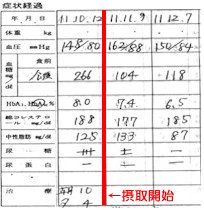 症状経過
年 月 日 11.10.12 11.11.9 11.12.7
体重 kg
血圧 mmHg 148/80 162/88 150/84
血糖 mg/dl 食前
/食後 266 104 118
HbA₁ % 8.0 7.4 6.5
総コレステロール mg/dl 188 177 185
中性脂肪 mg/dl 125 133 87
尿糖 ╫ ± −
尿蛋白 − − −
治療 10
←摂取開始